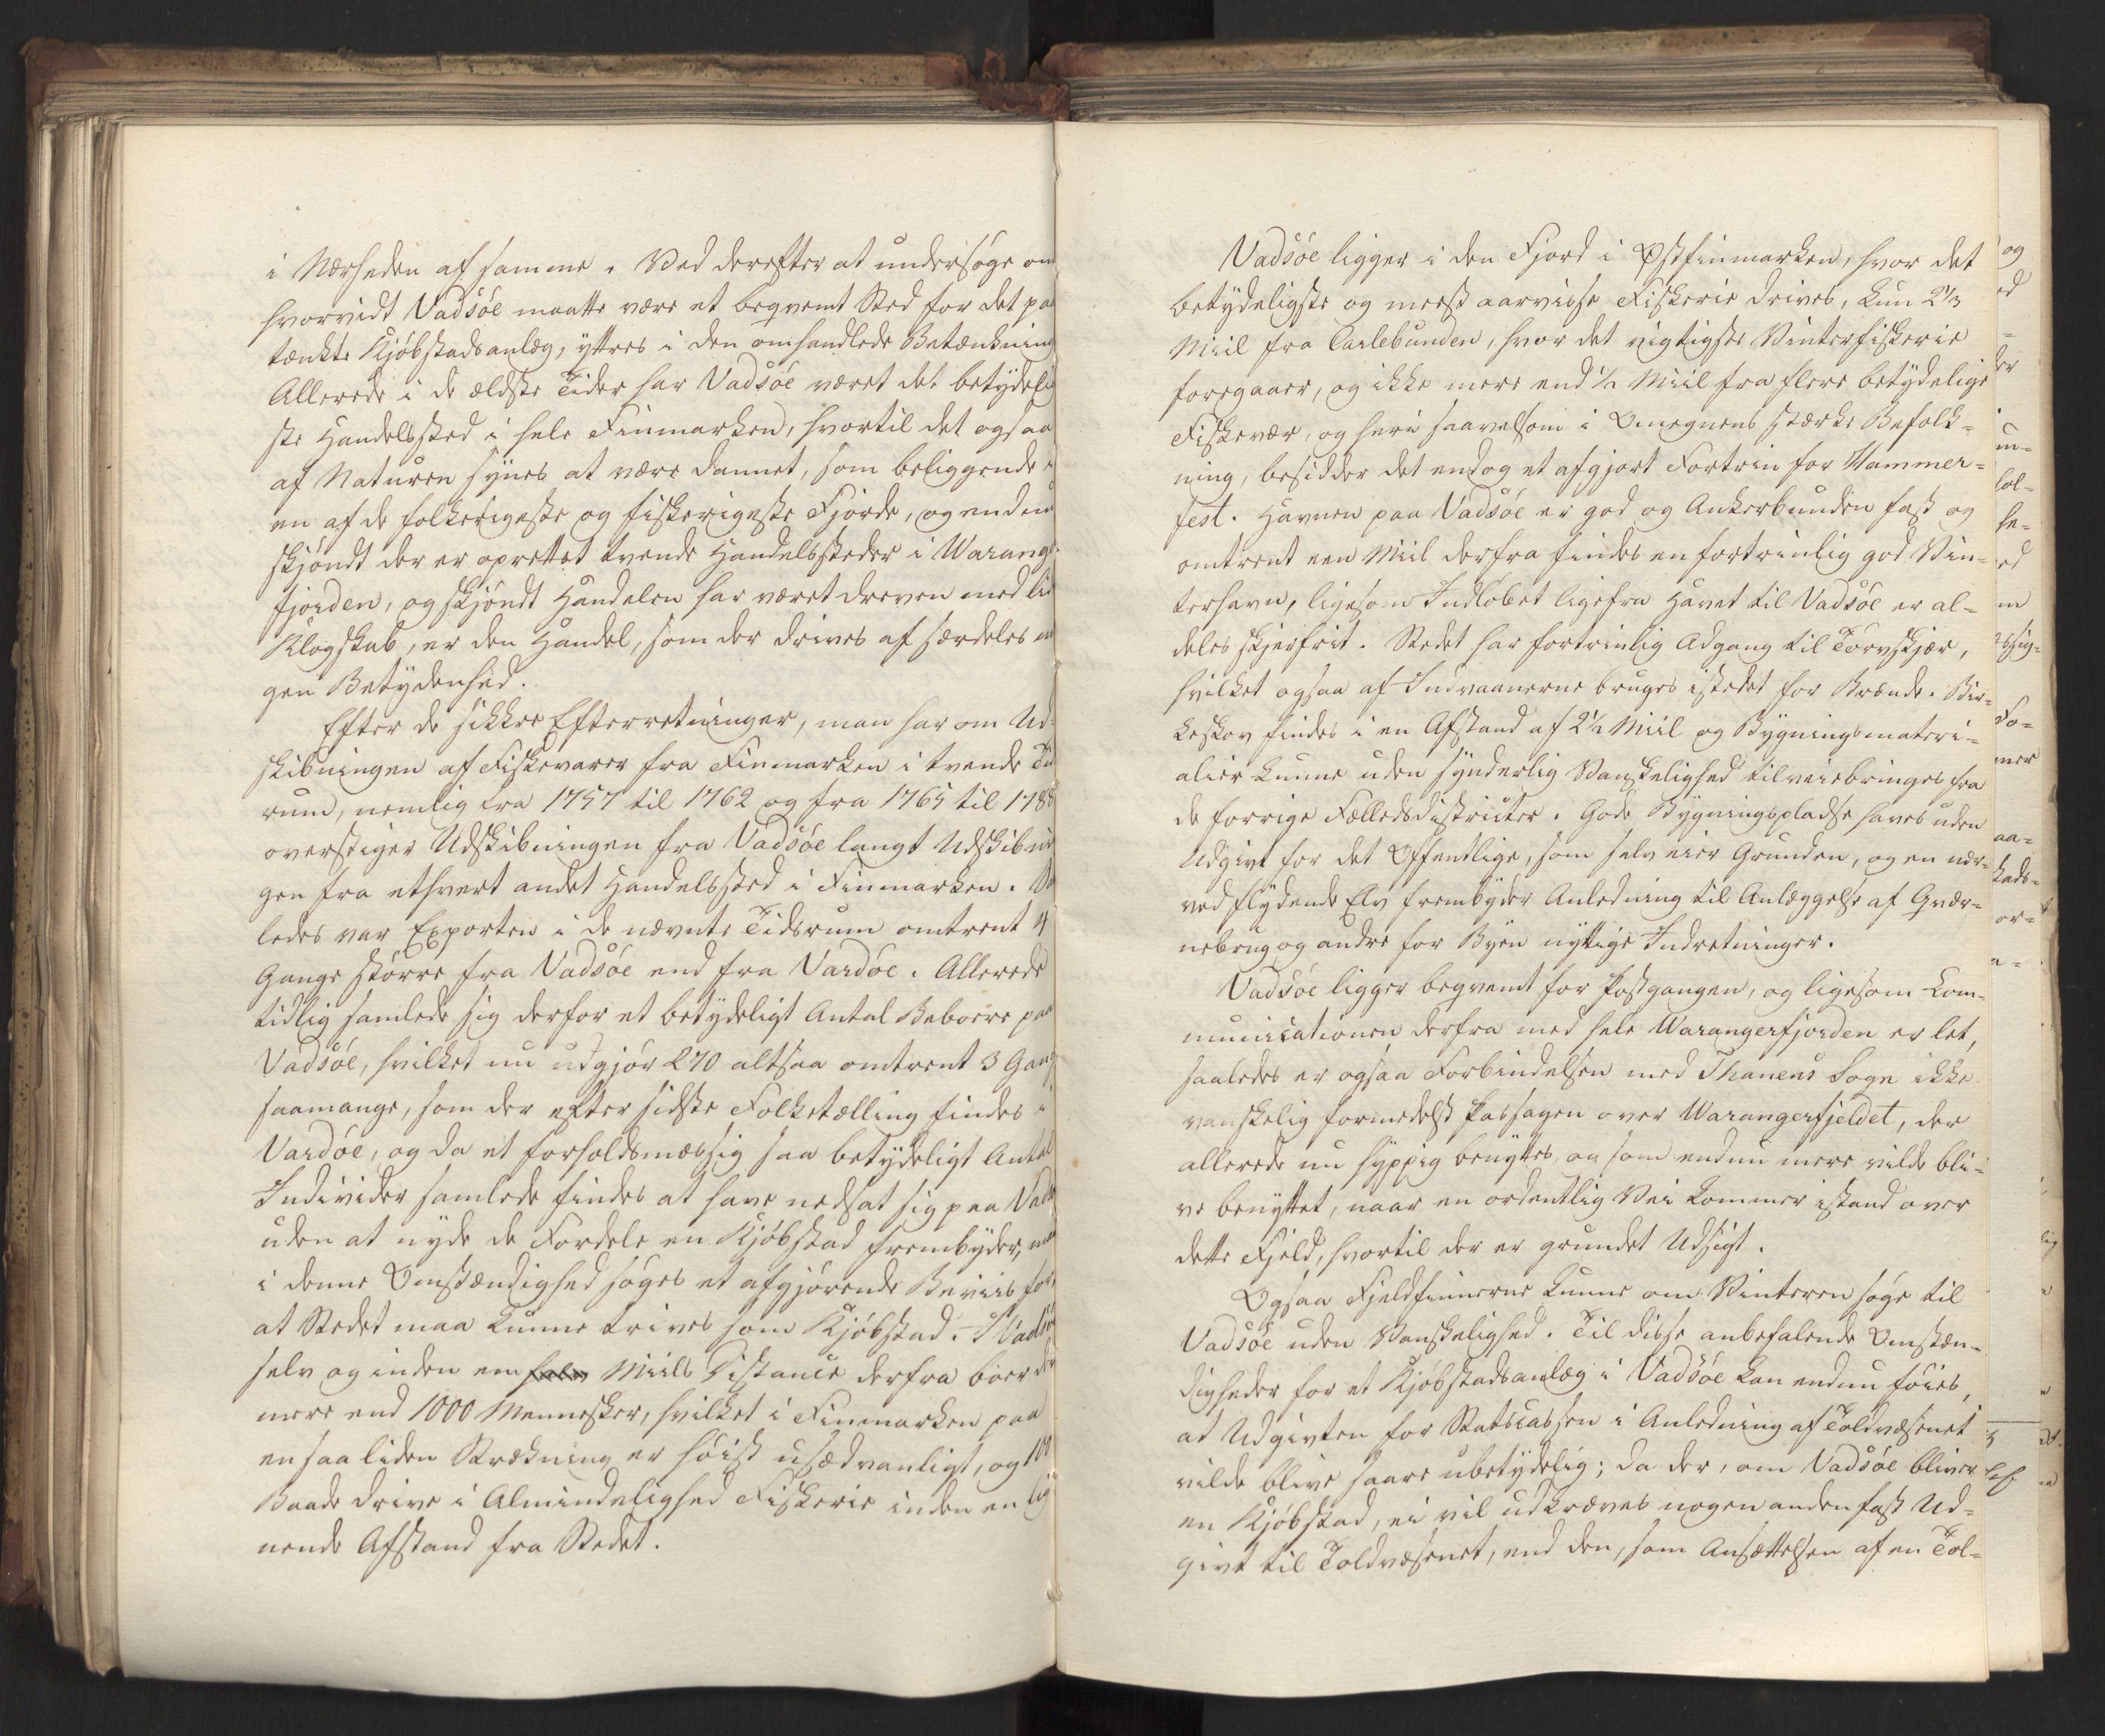 i Nærheden af samme. Ved derefter at undersøge om
hvorvidt Vadsöe maatte være et beqvemt Sted for det paa
tænkte Kjöbstadsanlæg, yttres i den omhandlede Betænkning
Allerede i de ældste Tider har Vadsöe været det betydelig
ste Handelssted i hele Finmarken, hvortil det ogsaa
af Naturen synes at være dannet, som beliggende i
en af de folkerigeste og fiskerigeste Fjorde, og endnu
skjöndt der er oprettet tvende Handelssteder i Warang
fjorden, og skjöndt Handelen har været dreven med lid
Klogskab, er den Handel, som der drives af særdeles m
gen Betydenhed.
Efter de sikkre Efterretninger, man har om Ud-
skibningen af Fiskevarer fra Finmarken i tvende Tid
rum, nemlig fra 1757 til 1762 og fra 1765 til 1788
overstiger Udskibningen fra Vadsöe langt Udskibnin
gen fra ethvert andet Handelssted i Finmarken. Saa
ledes var Exporten i de nævnte Tidsrum omtrent 4
Gange större fra Vadsöe end fra Vardöe. Allerede
tidlig samlede sig derfor et betydeligt Antal Beboere paa
Vadsöe, hvilket nu udgjör 270 altsaa omtrent 3 Gang
saamange, som der efter sidste Folketælling findes i
Vardöe, og da et forholdsmæssig saa betydeligt Antal
Individer samlede findes at have nedsat sig paa Vads
uden at nyde de Fordele en Kjöbstad frembyder, maa
i denne Omstændighed söges et afgjörende Beviis for,
at Stedet maa kunne trives som Kjöbstad. I Vadsö
selv og inden en halv Miils Distance derfra boer der
mere end 1000 Mennesker, hvilket i Finmarken paa
en saa liden Strækning er höist usædvanligt, og 100
Baade drive i Almindelighed Fiskerie inden en lig
nende Afstand fra Stedet.
Vadsöe ligger i den Fjord i Østfinmarken, hvor det
betydeligste og meest aarvisse Fiskerie drives, kun 2 1/3
Miil fra Carlebunden, hvor det vigtigste Vinterfiskerie
foregaaer, og ikke mere end 1/2 Miil fra flere betydelige
Fiskevær, og heri saavelsom i Omegnens stærke Befolk-
ning, besidder det endog et afgjort Fortrin for Hammer-
fest. Havnen paa Vadsöe er god og Ankerbunden fast og
omtrent een Miil derfra findes en fortrinlig god Vin-
terhavn, ligesom Indlöbet ligefra Havet til Vadsöe er al-
deles skjerfrit. Stedet har fortrinlig Adgang til Törvskjær,
hvilket ogsaa af Indvaanerne bruges istedet for Brænde. Bir-
keskov findes i en Afstand af 2 1/2 Miil og Bygningsmateri-
alier kunne uden synderlig Vanskelighed tilveiebringes fra
de forrige Fælledsdistricter. Gode Bygningspladse haves uden
Udgivt for det Offentlige, som selv eier Grunden, og en nær-
ved flydende Elv frembyder Anledning til Anlæggelse af Qvær-
nebrug og andre for Byen nyttige Indretninger.
Vadsöe ligger beqvemt for Postgangen, og ligesom Com-
municationen derfra med hele Warangerfjorden er let,
saaledes er ogsaa Forbindelsen med Thanens Sogn ikke
vanskelig formedelst Passagen over Warangerfjeldet, der
allerede nu hyppig benyttes, og som endnu mere vilde bli-
ve benyttet, naar en ordentlig Vei kommer istand over
dette Fjeld, hvortil der er grundet Udsigt.
Ogsaa Fjeldfinnerne kunne om Vinteren söge til
Vadsöe uden Vanskelighed. Til disse anbefalende Omstæn-
digheder for et Kjöbstadsanlæg i Vadsöe kan endnu föies,
at Udgivten for Statscassen i Anledning af Toldvæsenet
vilde blive saare ubetydelig; da der, om Vadsöe bliver
en Kjöbstad, ei vil udkræves nogen anden fast Ud-
givt til Toldvæsenet, end den, som Ansættelsen af en Tol-